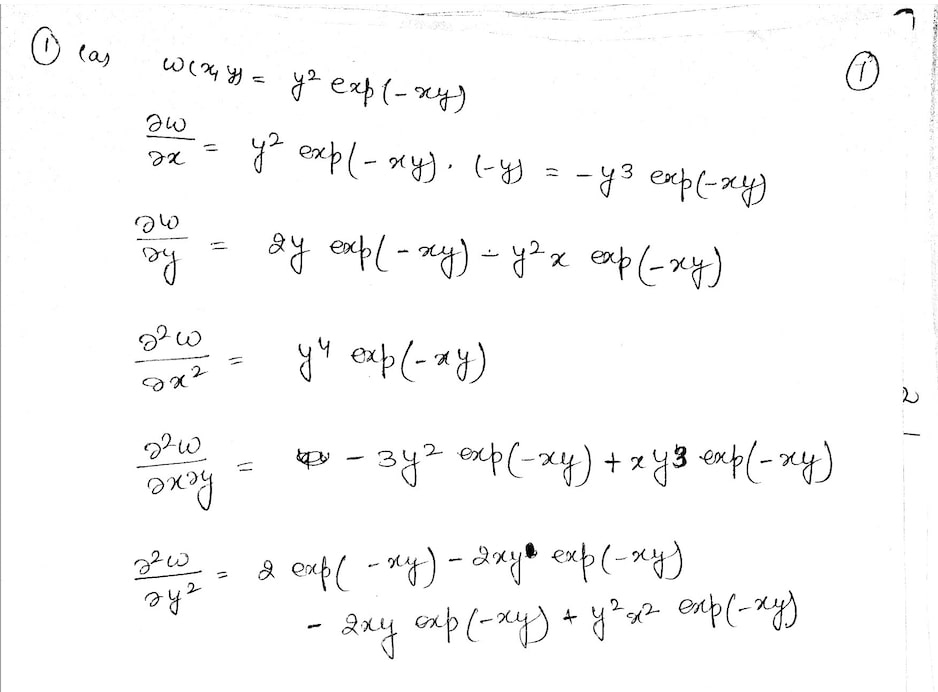 ① (a) w(x, y) = y² exp(-xy) ①
∂w/∂x = y² exp(-xy) · (-y) = -y³ exp(-xy)
∂w/∂y = 2y exp(-xy) - y²x exp(-xy)
∂²w/∂x² = y⁴ exp(-xy)
∂²w/∂x∂y = -3y² exp(-xy) + xy³ exp(-xy)
∂²w/∂y² = 2 exp(-xy) - 2xy exp(-xy)
- 2xy exp(-xy) + y²x² exp(-xy)
2